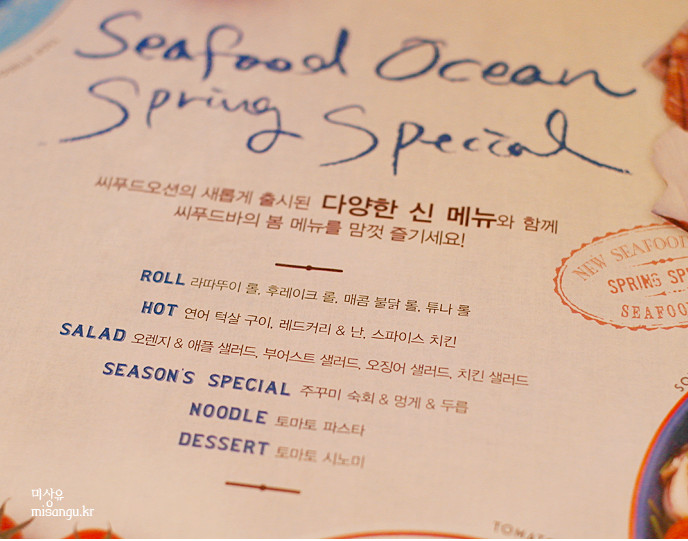 Seafood Ocean
Spring Special
씨푸드오션의 새롭게 출시된 다양한 신 메뉴와 함께
씨푸드바의 봄 메뉴를 맘껏 즐기세요!
ROLL 라따뚜이 롤, 후레이크 롤, 매콤 불닭 롤, 튜나 롤
HOT 연어 턱살 구이, 레드커리 & 난, 스파이스 치킨
SALAD 오렌지 & 애플 샐러드, 부어스트 샐러드, 오징어 샐러드, 치킨 샐러드
SEASON'S SPECIAL 주꾸미 숙회 & 멍게 & 두릅
NOODLE 토마토 파스타
DESSERT 토마토 시노미
NEW SEAFOOD
SPRING SP
SEAFOO
미상유
misangu.kr
TOMAT